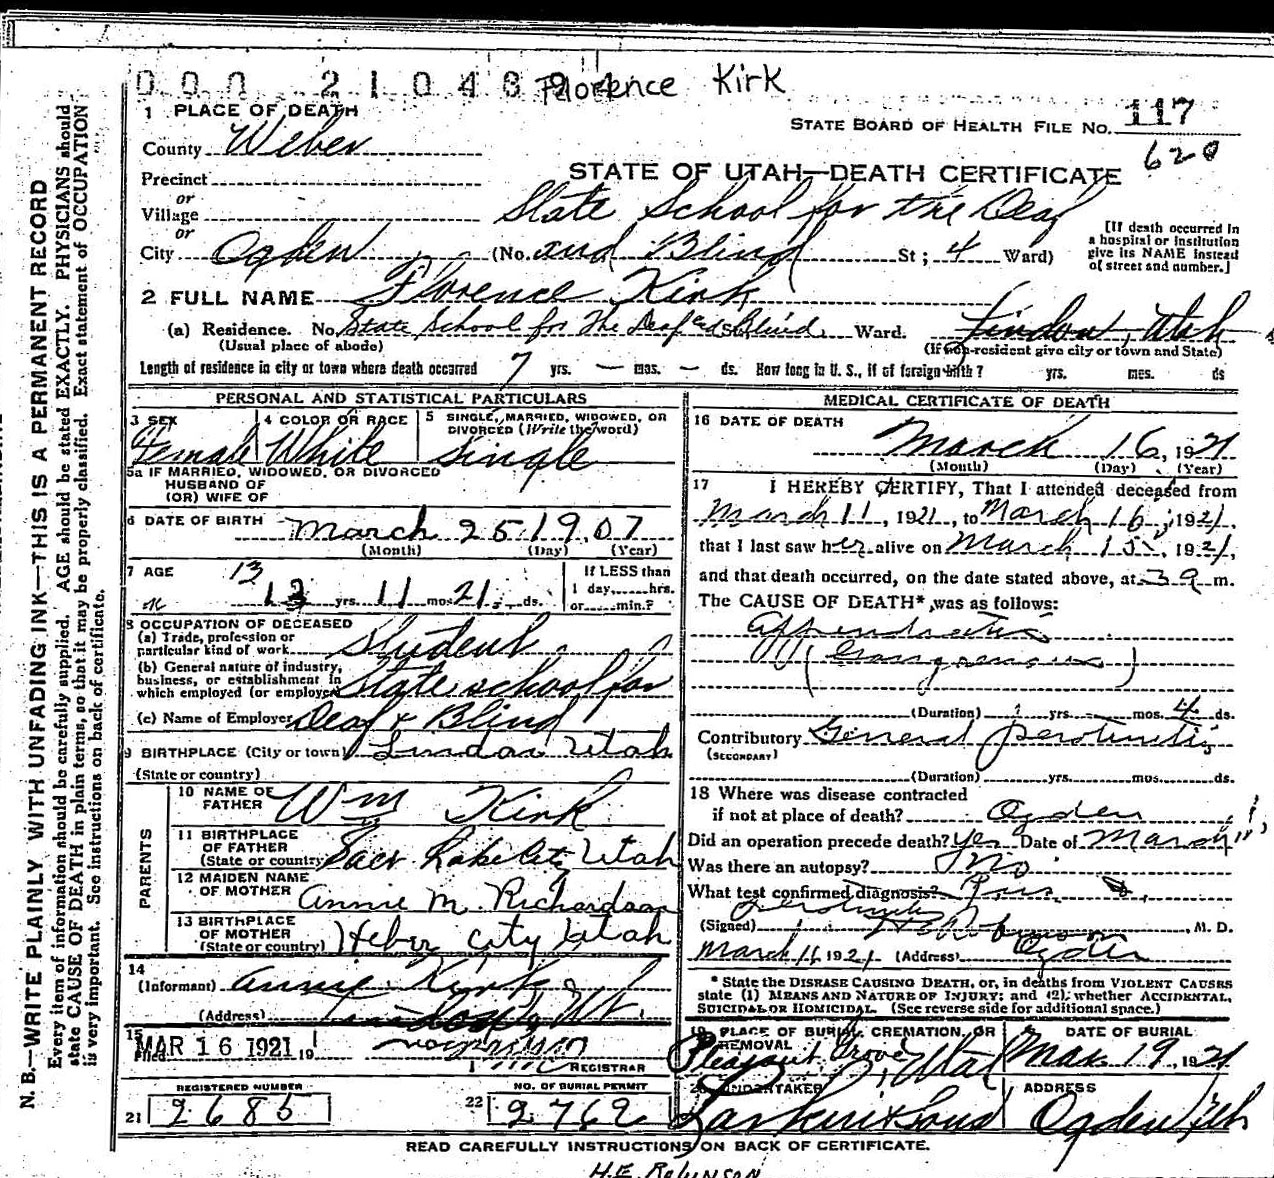 Florence Kirk
1 PLACE OF DEATH
STATE BOARD OF HEALTH FILE No. 117
620
County Weber
STATE OF UTAH—DEATH CERTIFICATE
Precinct
or
Village
State School for the Deaf
or
City Ogden (No. and Blind St; 4 Ward)
[If death occurred in a hospital or institution give its NAME instead of street and number.]
2 FULL NAME Florence Kirk
(a) Residence. No. State School for The Deaf and Blind St, Ward. Lindon, Utah
(Usual place of abode) (If non-resident give city or town and State)
Length of residence in city or town where death occurred 7 yrs. — mos. — ds. How long in U. S., if of foreign birth? yrs. mos. ds
PERSONAL AND STATISTICAL PARTICULARS
3 SEX 4 COLOR OR RACE 5 SINGLE, MARRIED, WIDOWED, OR DIVORCED (Write the word)
Female White Single
5a IF MARRIED, WIDOWED, OR DIVORCED
HUSBAND OF
(OR) WIFE OF
6 DATE OF BIRTH March 25 1907
(Month) (Day) (Year)
7 AGE 13
13 yrs. 11 mos. 21 ds.
If LESS than
1 day,......hrs.
or......min.?
8 OCCUPATION OF DECEASED
(a) Trade, profession or particular kind of work Student
(b) General nature of industry, business, or establishment in which employed (or employer) State school for
(c) Name of Employer Deaf & Blind
9 BIRTHPLACE (City or town) Lindon Utah
(State or country)
PARENTS
10 NAME OF FATHER Wm Kirk
11 BIRTHPLACE OF FATHER (State or country) Salt Lake City Utah
12 MAIDEN NAME OF MOTHER Annie M. Richardson
13 BIRTHPLACE OF MOTHER (State or country) Heber City Utah
14
(Informant) Annie Kirk
(Address) Lindon, Ut.
15
Filed MAR 16 1921 19
REGISTRAR
REGISTERED NUMBER NO. OF BURIAL PERMIT
21 2685 22 2762
MEDICAL CERTIFICATE OF DEATH
16 DATE OF DEATH
March 16, 1921
(Month) (Day) (Year)
17 I HEREBY CERTIFY, That I attended deceased from
March 11, 1921, to March 16, 1921,
that I last saw her alive on March 15, 1921,
and that death occurred, on the date stated above, at 3 a m.
The CAUSE OF DEATH* was as follows:
Appendicitis
(Gangrenous)
(Duration) yrs. mos. 4 ds.
Contributory General peritonitis
(SECONDARY)
(Duration) yrs. mos. ds.
18 Where was disease contracted
if not at place of death? Ogden
Did an operation precede death? Yes Date of March 11
Was there an autopsy? No
What test confirmed diagnosis? Pus
(Signed) H E Robinson, M. D.
March 16 1921 (Address) Ogden
* State the DISEASE CAUSING DEATH, or, in deaths from VIOLENT CAUSES state (1) MEANS AND NATURE OF INJURY; and (2), whether ACCIDENTAL, SUICIDAL OR HOMICIDAL. (See reverse side for additional space.)
19 PLACE OF BURIAL, CREMATION, OR REMOVAL DATE OF BURIAL
Pleasant Grove, Utah Mar. 19, 1921
20 UNDERTAKER ADDRESS
Larkin & Sons Ogden Utah
READ CAREFULLY INSTRUCTIONS ON BACK OF CERTIFICATE.
H.E. ROBINSON
N. B.—WRITE PLAINLY WITH UNFADING INK—THIS IS A PERMANENT RECORD
Every item of information should be carefully supplied. AGE should be stated EXACTLY. PHYSICIANS should
state CAUSE OF DEATH in plain terms, so that it may be properly classified. Exact statement of OCCUPATION
is very important. See instructions on back of certificate.